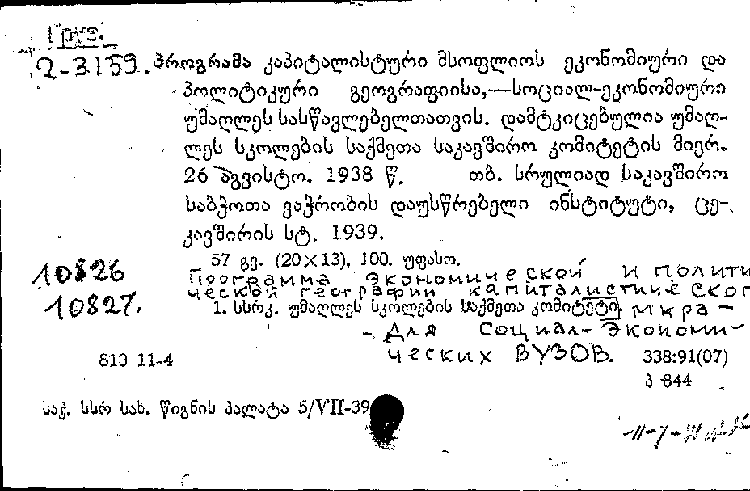 Груз.
2-3159. პროგრამა კაპიტალისტური მსოფლიოს ეკონომიური და
პოლიტიკური გეოგრაფიისა,—სოციალ-ეკონომიური
უმაღლეს სასწავლებელთათვის. დამტკიცებულია უმაღ-
ლეს სკოლების საქმეთა საკავშირო კომიტეტის მიერ.
26 აგვისტო. 1938 წ. თბ. სრულიად საკავშირო
საბჭოთა ვაჭრობის დაუსწრებელი ინსტიტუტი, ცე-
კავშირის სტ. 1939.
57 გვ. (20×13), 100. უფასო.
10826 Программа экономической и полити
ческой географии капиталистическог
10827. 1. სსრკ. უმაღლეს სკოლების საქმეთა კომიტეტი мира -
- Для социал-экономи-
ческих ВУЗОВ. 338:91(07)
810 11-4
პ 844
საქ. სსრ სახ. წიგნის პალატა 5/VII-39